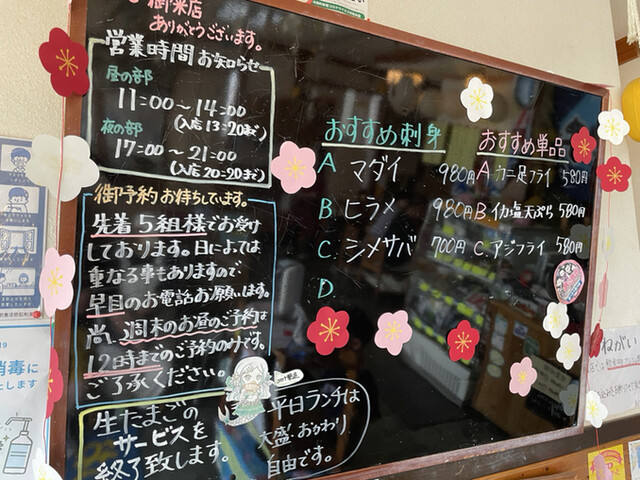 御来店
ありがとうございます。
営業時間お知らせ
昼の部
11:00～14:00
(入店13:20まで)
夜の部
17:00～21:00
(入店20:20まで)
御予約お待ちしています。
先着5組様でお受け
しております。日によっては
重なる事もありますので、
早目のお電話お願いします。
尚、週末のお昼のご予約は
12時までのご予約のみです。
ご了承ください。
生たまごの
サービスを
終了致します。
平日ランチは
大盛・おかわり
自由です。
おすすめ刺身
A マダイ 980円
B ヒラメ 980円
C. シメサバ 700円
D.
おすすめ単品
A. カニ足フライ 580円
B. イカ塩天ぷら 580円
C. アジフライ 580円
消毒に
とします
ねがい